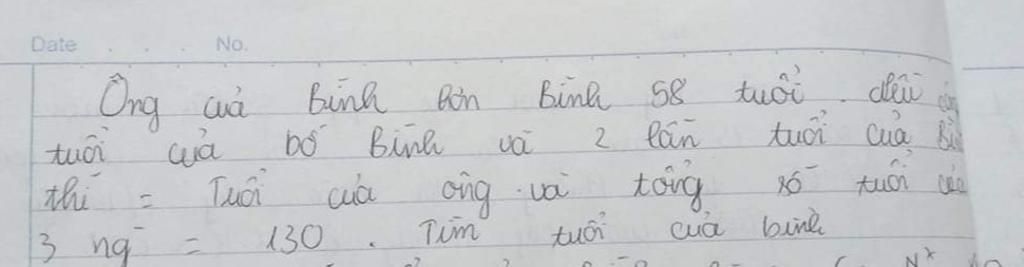 Date . . . No.
Ông của Bình hơn Bình 58 tuổi. Nếu cộng
tuổi của bố Bình và 2 lần tuổi của Bình
thì = Tuổi của ông và tổng số tuổi của
3 ng = 130. Tìm tuổi của bình
N*